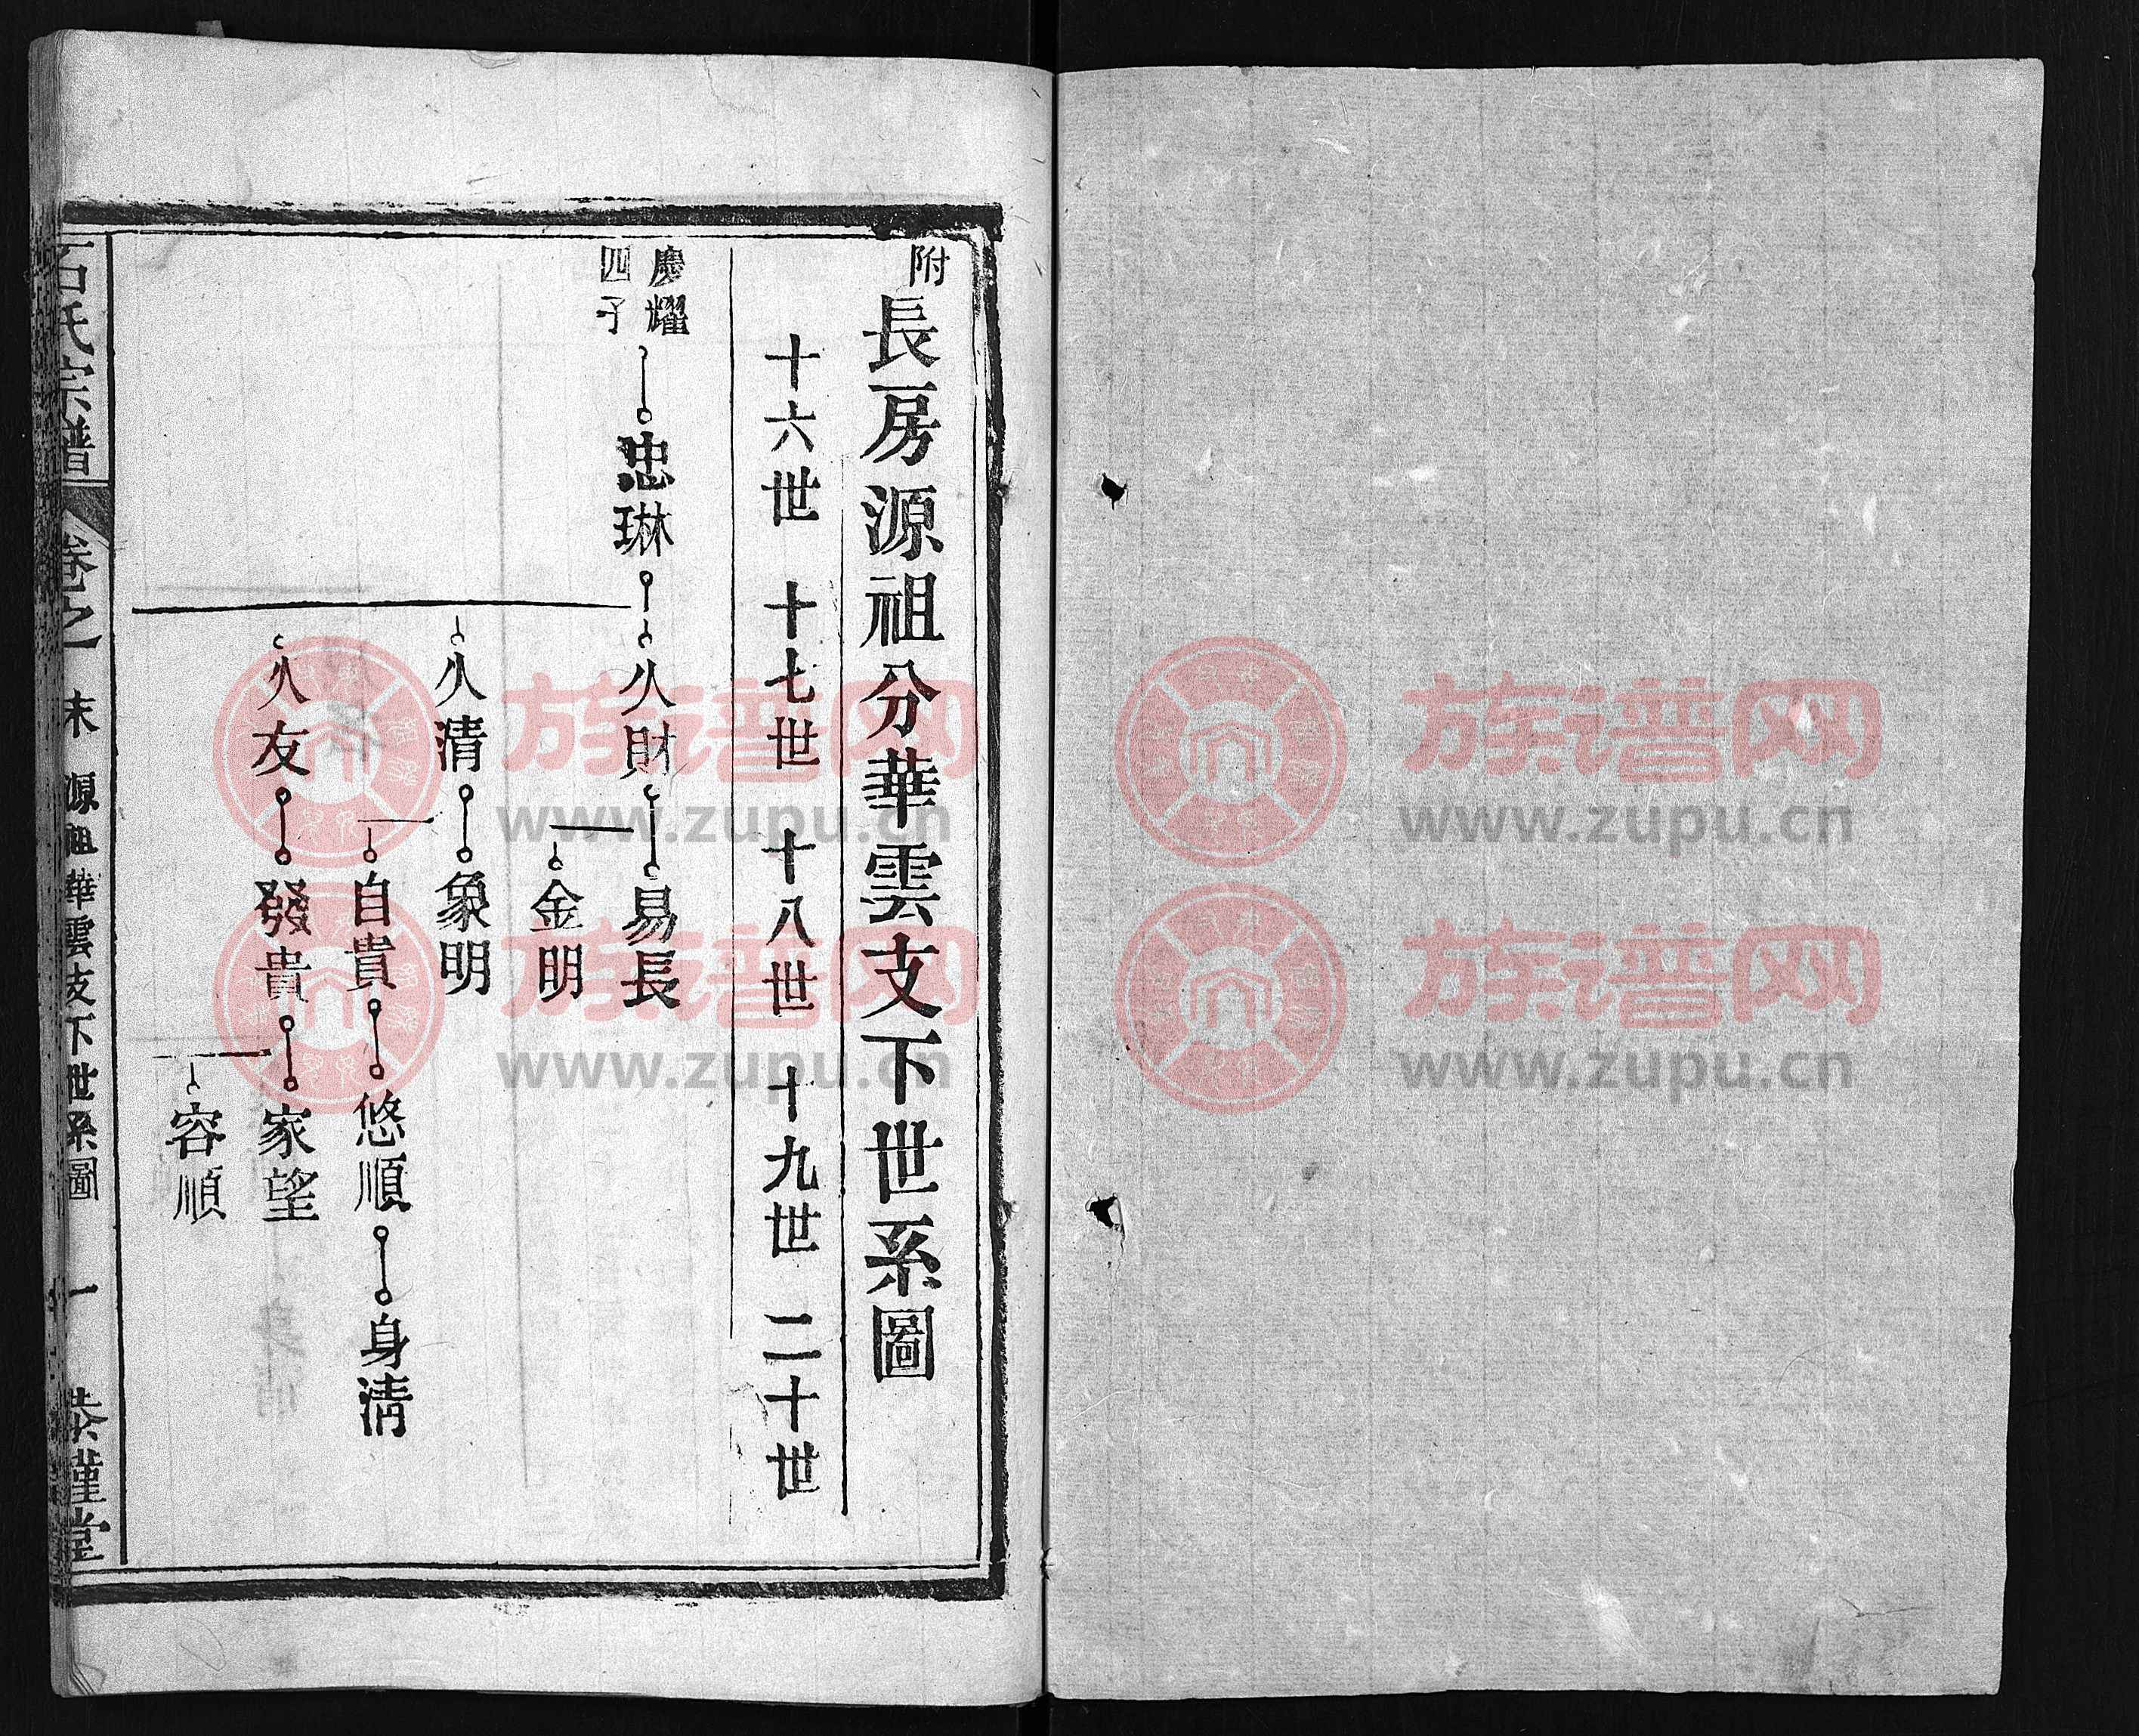 附長房源祖分華雲支下世系圖
十六世 十七世 十八世 十九世 二十世
慶耀
四子
忠琳
久財
易長
金明
久清
象明
自貴
悠順
身清
久友
發貴
家望
容順
石氏宗譜 卷之 末 源祖華雲支下世系圖 一
族谱网
www.zupu.cn
族谱网
www.zupu.cn
族谱网
www.zupu.cn
族谱网
www.zupu.cn